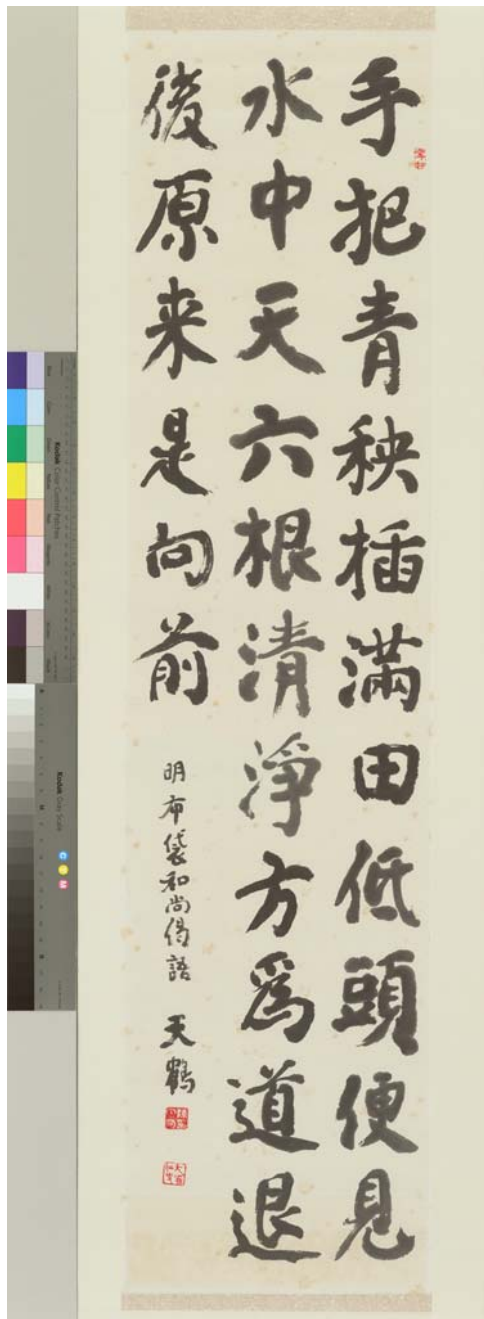 手把青秧插滿田低頭便見
水中天六根清淨方為道退
後原来是向前
明布袋和尚偈語 天鶴
Kodak Color Control Patches
Kodak Gray Scale
C Y M